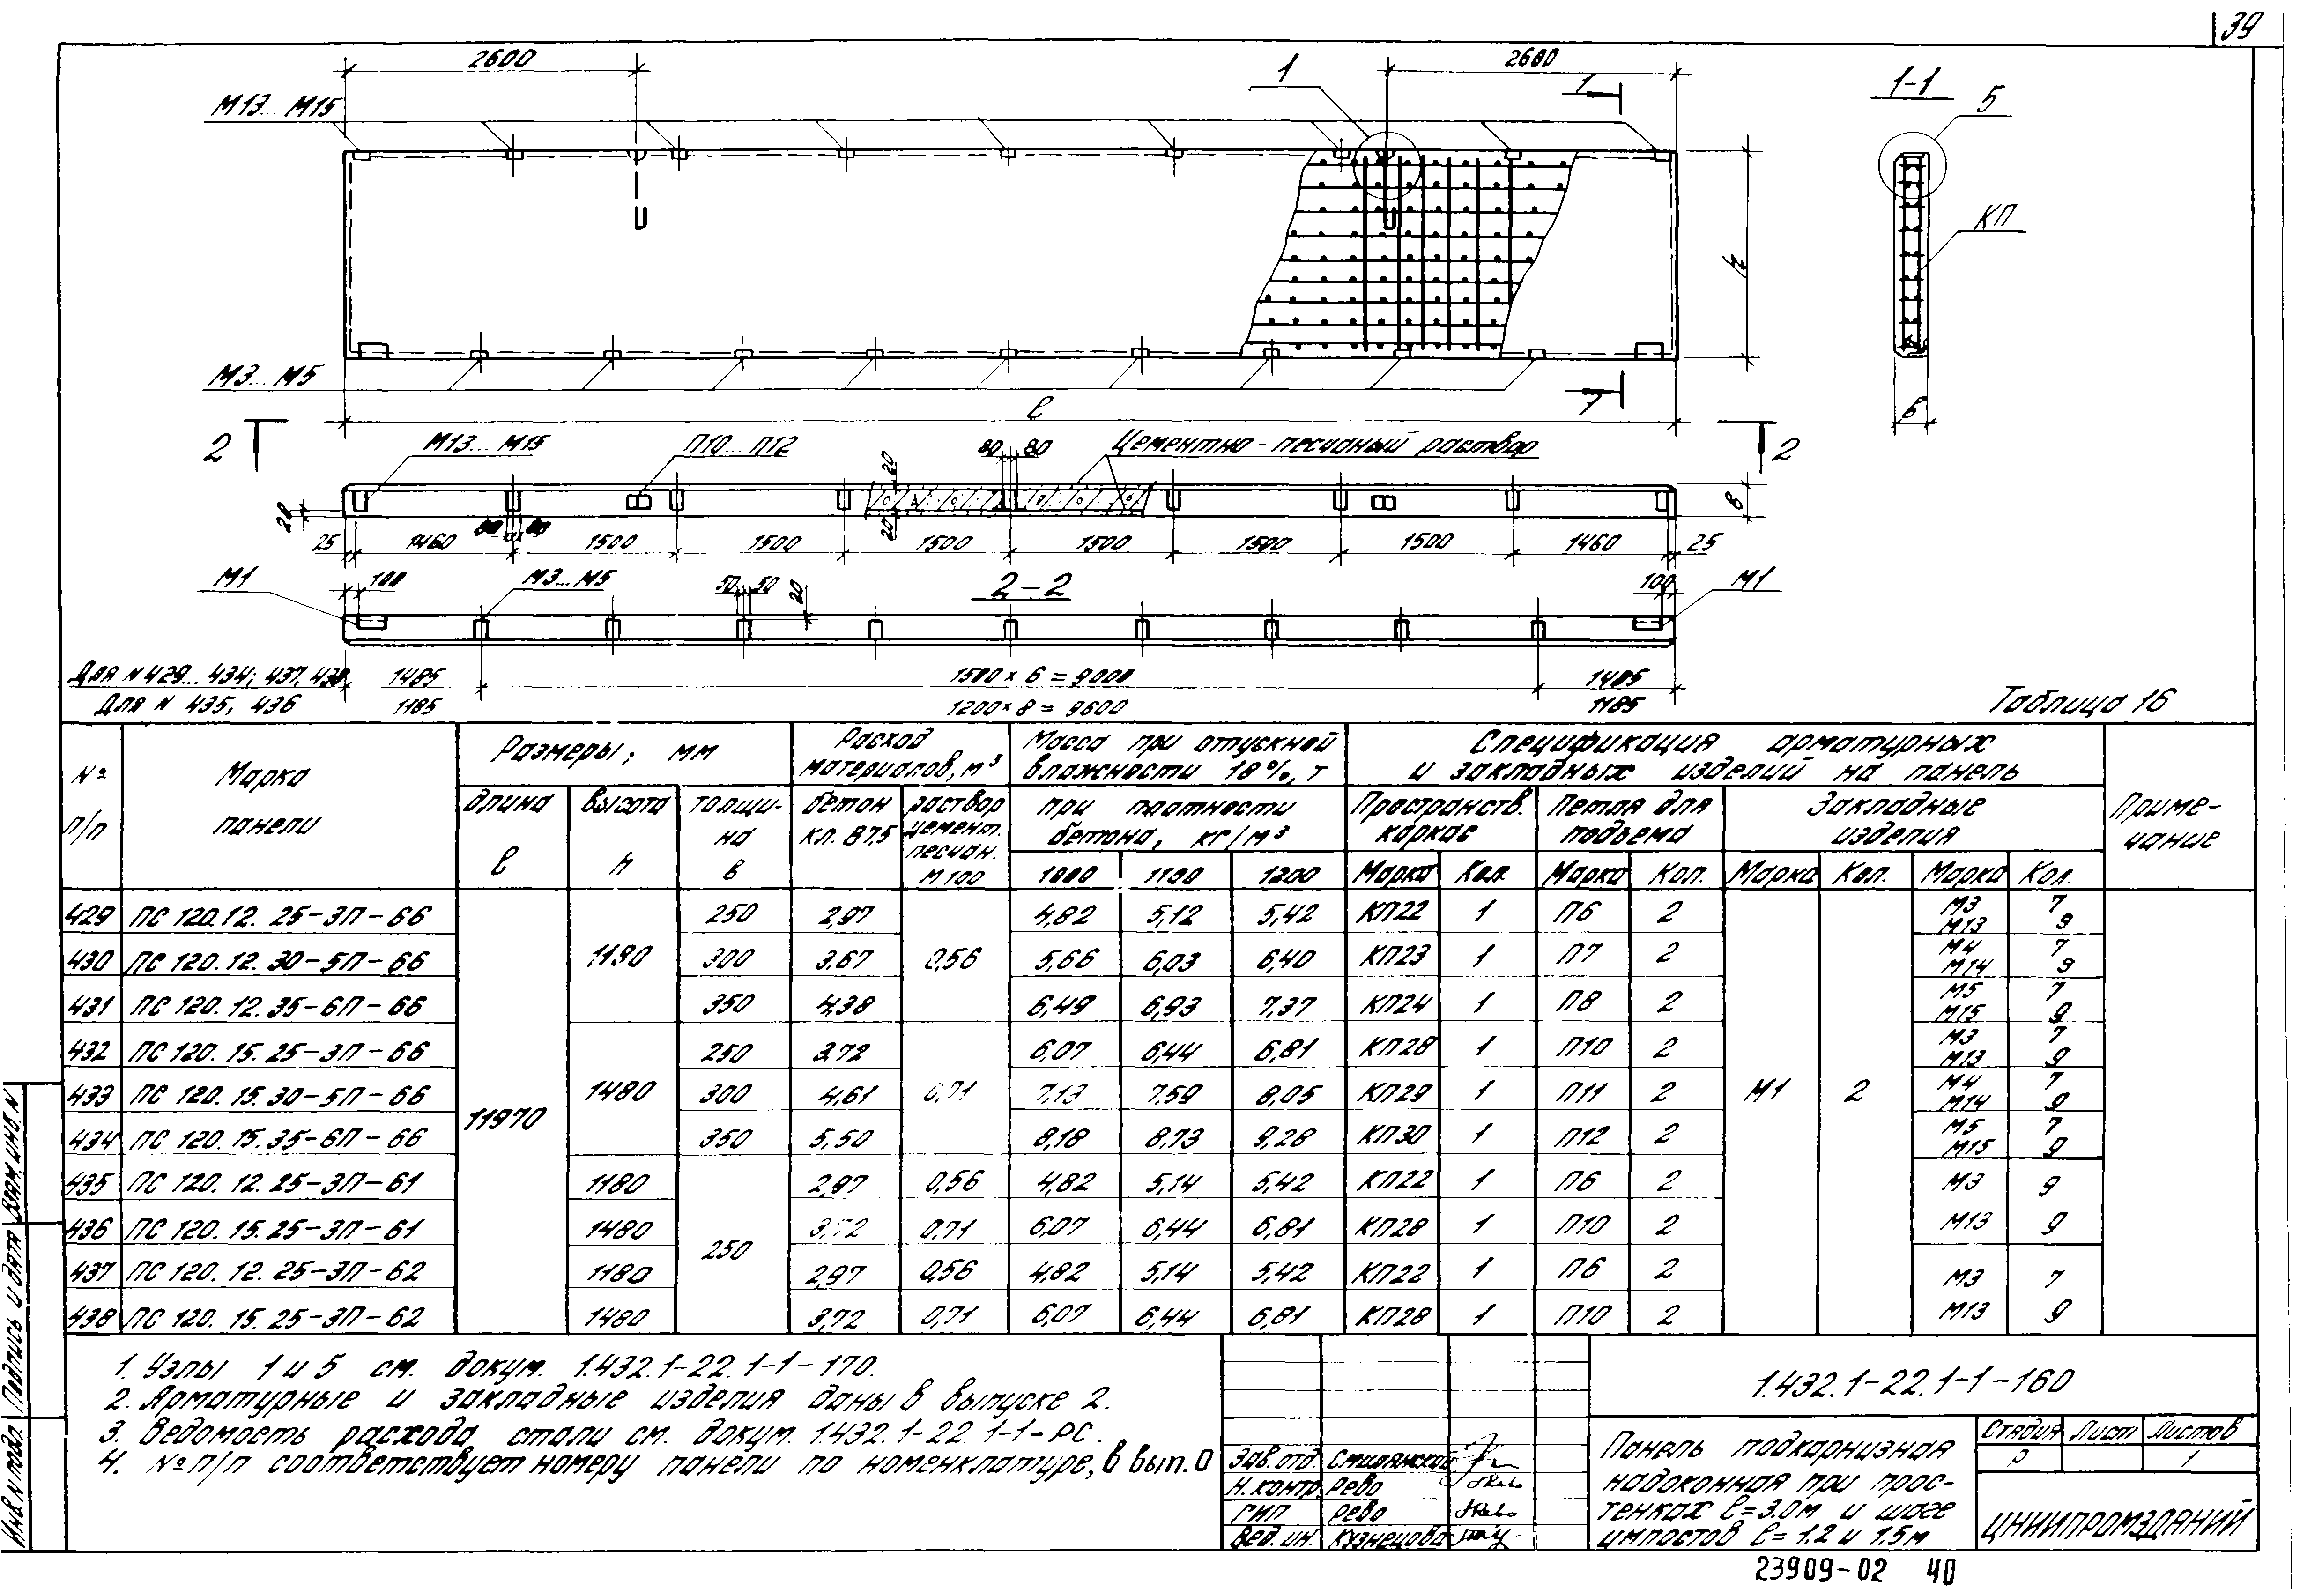 39
2600
2600
1
1
1-1
5
М13... М15
КП
h
М3... М5
1
ℓ
в
2
2
М13... М15
П10... П12
80
80
Цементно-песчаный раствор
20
20
20
в
25
1460
1500
1500
1500
1500
1500
1500
1460
25
М1
100
М3... М5
50
50
20
2-2
100
М1
Для N 429... 434; 437, 438
1485
1500 × 6 = 9000
1485
Для N 435, 436
1185
1200 × 8 = 9600
1185
Таблица 16
№ п/п
Марка панели
Размеры, мм
длина ℓ
высота h
толщина в
Расход материалов, м³
бетон кл. В7,5
раствор цемент. песчан. М 100
Масса при отпускной влажности 18%, т
при плотности бетона, кг/м³
1000
1100
1200
Спецификация арматурных и закладных изделий на панель
Пространств. каркас
Петля для подъема
Закладные изделия
Марка Кол. Марка Кол. Марка Кол. Марка Кол.
Примечание
429 ПС 120.12.25-3П-66 250 2,97 4,82 5,12 5,42 КП22 1 П6 2 М3 7 М13 9
430 ПС 120.12.30-5П-66 1180 300 3,67 0,56 5,66 6,03 6,40 КП23 1 П7 2 М4 7 М14 9
431 ПС 120.12.35-6П-66 350 4,38 6,49 6,93 7,37 КП24 1 П8 2 М5 7 М15 9
432 ПС 120.15.25-3П-66 250 3,72 6,07 6,44 6,81 КП28 1 П10 2 М3 7 М13 9
433 ПС 120.15.30-5П-66 11970 1480 300 4,61 0,71 7,13 7,59 8,05 КП29 1 П11 2 М1 2 М4 7 М14 9
434 ПС 120.15.35-6П-66 350 5,50 8,18 8,73 9,28 КП30 1 П12 2 М5 7 М15 9
435 ПС 120.12.25-3П-61 1180 2,97 0,56 4,82 5,14 5,42 КП22 1 П6 2 М3 9
436 ПС 120.15.25-3П-61 1480 250 3,72 0,71 6,07 6,44 6,81 КП28 1 П10 2 М13 9
437 ПС 120.12.25-3П-62 1180 2,97 0,56 4,82 5,14 5,42 КП22 1 П6 2 М3 7
438 ПС 120.15.25-3П-62 1480 3,72 0,71 6,07 6,44 6,81 КП28 1 П10 2 М13 9
1. Узлы 1 и 5 см. докум. 1.432.1-22.1-1-170.
2. Арматурные и закладные изделия даны в выпуске 2.
3. Ведомость расхода стали см. докум. 1.432.1-22.1-1-РС.
4. № п/п соответствует номеру панели по номенклатуре, в вып. 0
Зав. отд. Смилянский
Н. контр. Рево
ГИП Рево
Вед. ин. Кузнецова
1.432.1-22.1-1-160
Панель подкарнизная
надоконная при прос-
тенках ℓ=3.0м и шаге
импостов ℓ= 1,2 и 1,5м
Стадия Лист Листов
Р 1
ЦНИИПРОМЗДАНИЙ
23909-02 40
Инв. N подл. Подпись и дата Взам. инв. N